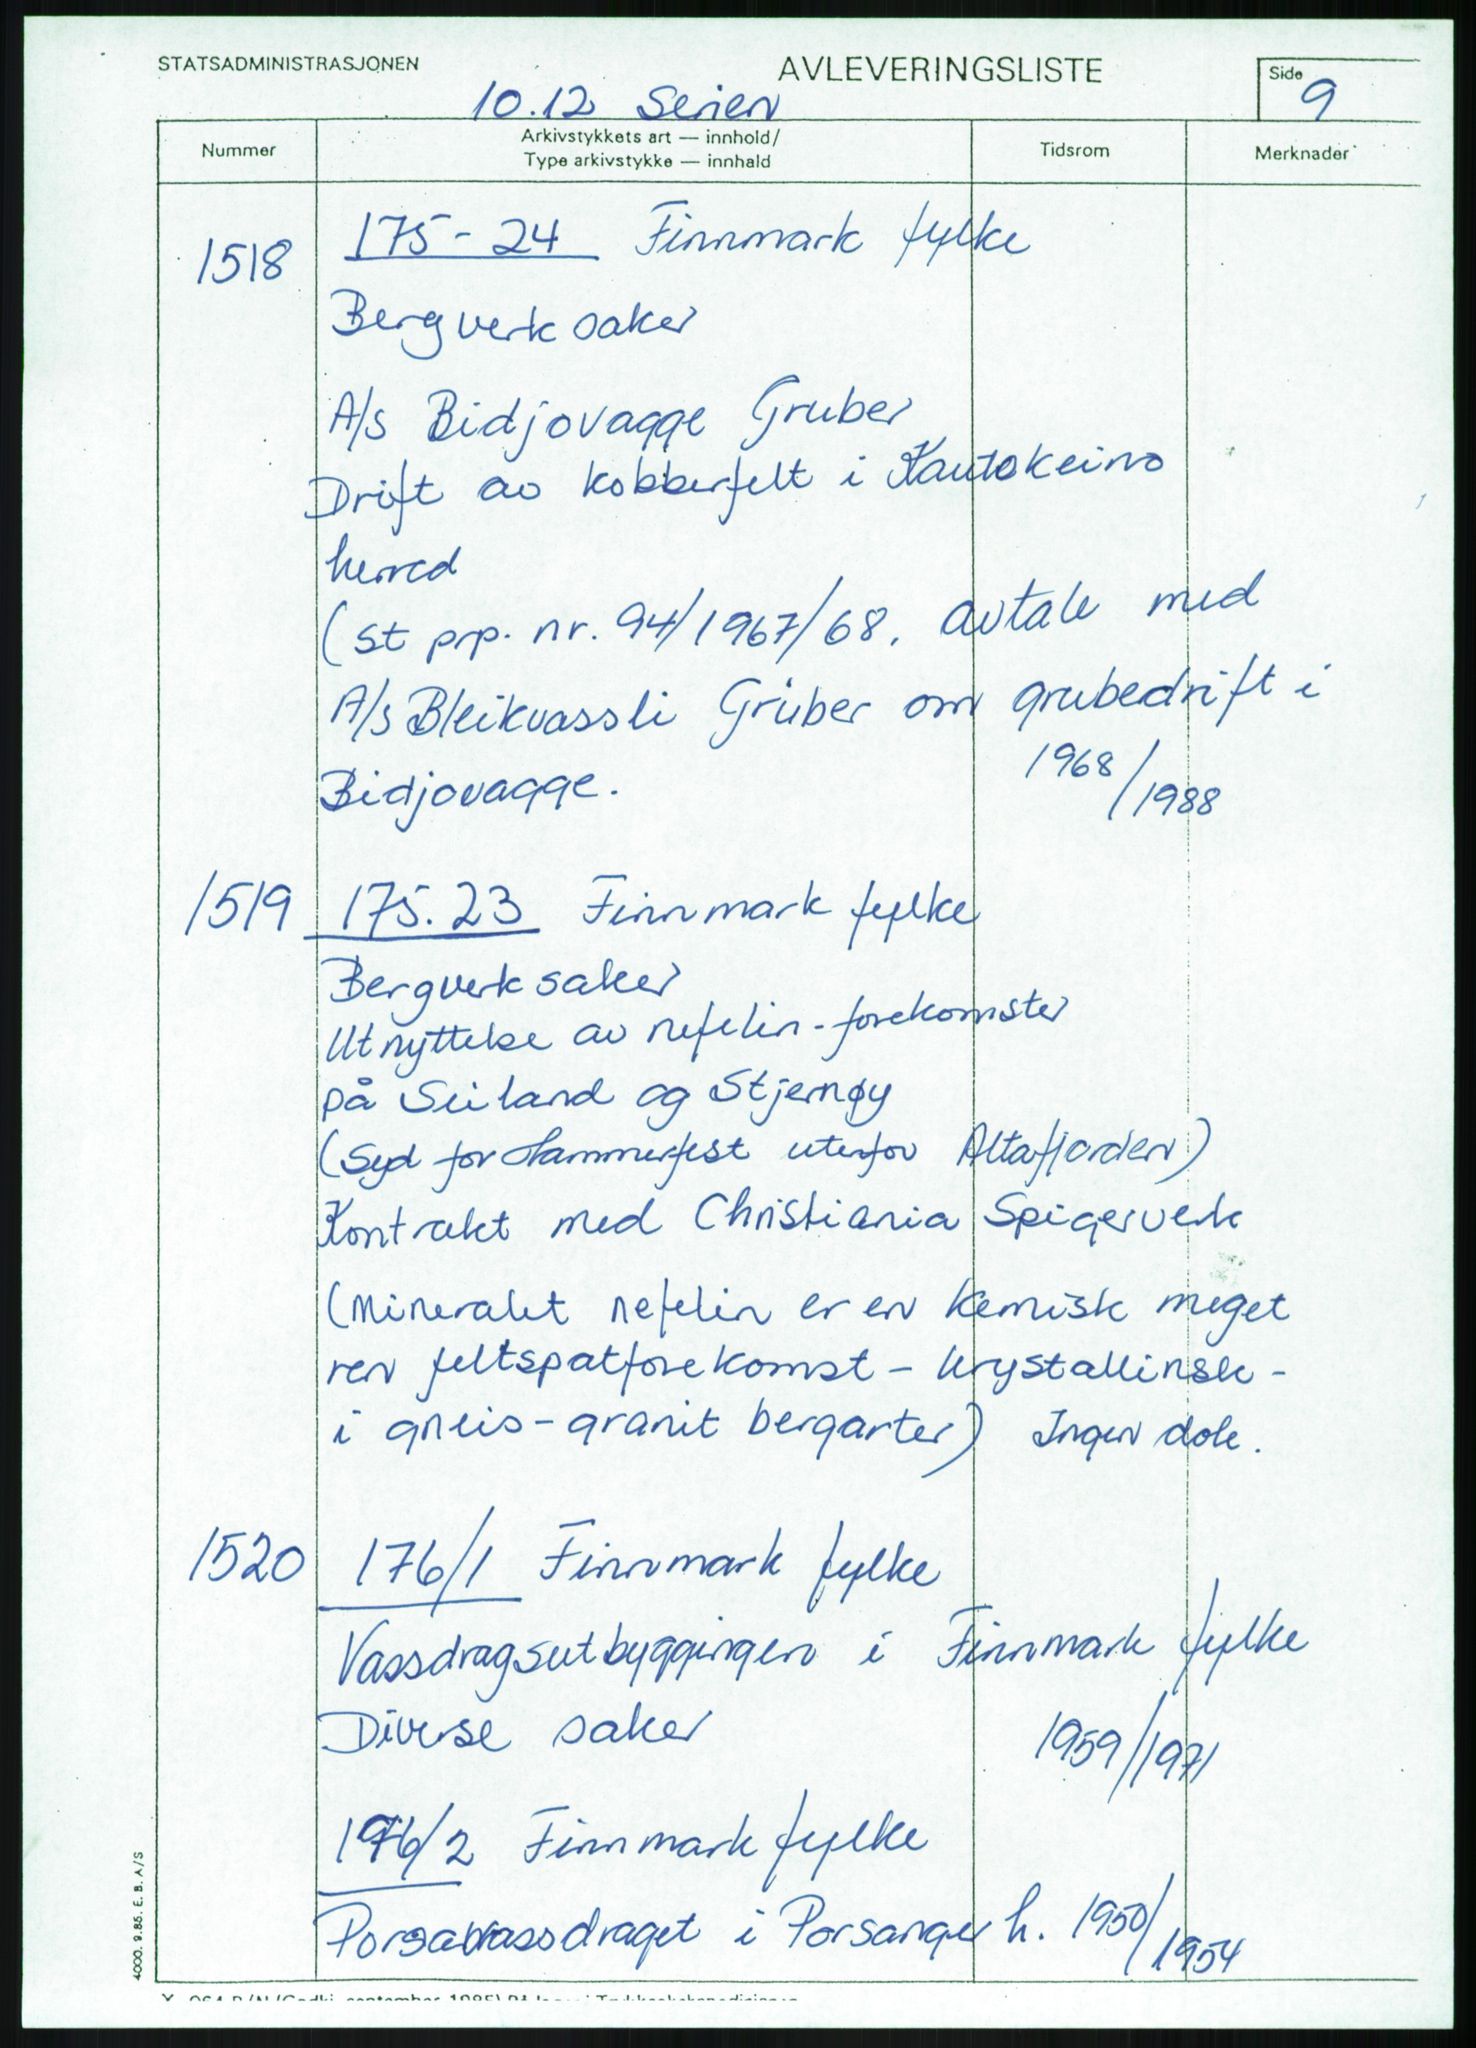 STATSADMINISTRASJONEN
AVLEVERINGSLISTE
Side
9
10.12 Serien
Nummer
Arkivstykkets art — innhold/
Type arkivstykke — innhald
Tidsrom
Merknader
1518
175-24 Finnmark fylke
Bergverksaker
A/s Bidjovagge Gruber
Drift av kobberfelt i Kautokeino
herred
(st prp. nr. 94/1967/68. avtale med
A/s Bleikvassli Gruber om grubedrift i
Bidjovagge.
1968/1988
1519
175.23 Finnmark fylke
Bergverksaker
Utnyttelse av nefelin-forekomster
på Seiland og Stjernøy
(Syd for Hammerfest utenfor Altafjorden)
Kontrakt med Christiania Spigerverk
(mineralet nefelin er en kemisk meget
ren feltspatforekomst - krystallinsk -
i gneis-granit bergarter) Ingen dok.
1520
176/1 Finnmark fylke
Vassdragsutbyggingen i Finnmark fylke
Diverse saker
1959/1971
176/2 Finnmark fylke
Porsavassdraget i Porsanger h. 1950/1954
4000. 9.85. E. B. A/S